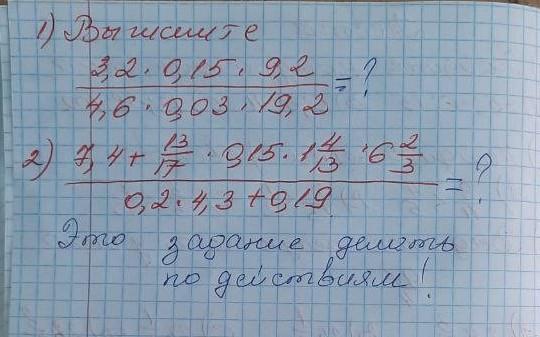 1) Вычислите
3,2 · 0,15 · 9,2
4,6 · 0,03 · 19,2
= ?
2) 7,4 + 13/17 · 0,15 · 1 4/13 · 6 2/3
0,2 · 4,3 + 0,19
= ?
Это задание делать
по действиям!